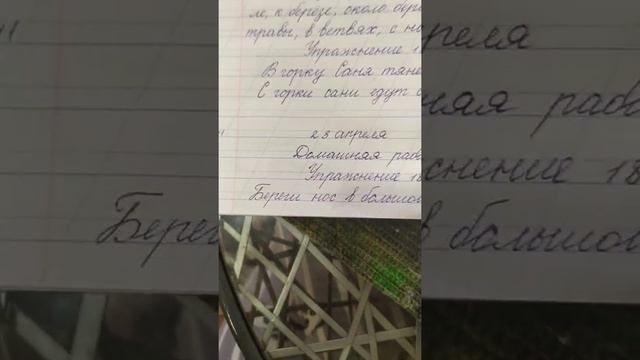 ле, к березе, около бере
травы, в ветвях, с но
Упражнение 1
В горку Саня тяне
С горки сани едут с
23 апреля
Домашняя рабо
Упражнение 18
Береги нос в большой